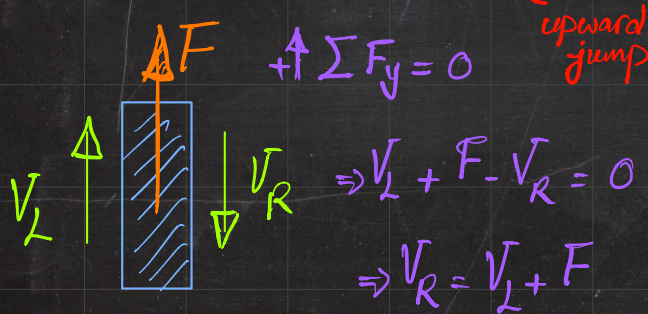 upward
jump
F
+↑ ΣF_y = 0
V_L
V_R
⇒ V_L + F - V_R = 0
⇒ V_R = V_L + F